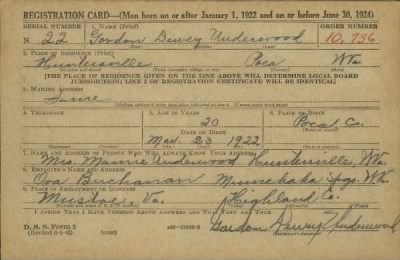 REGISTRATION CARD—(Men born on or after January 1, 1922 and on or before June 30, 1924)
SERIAL NUMBER 1. NAME (Print) ORDER NUMBER
N 22 Gordon Dewey Underwood 10,736
2. PLACE OF RESIDENCE (Print)
Huntersville Poca W Va
[THE PLACE OF RESIDENCE GIVEN ON THE LINE ABOVE WILL DETERMINE LOCAL BOARD
JURISDICTION; LINE 2 OF REGISTRATION CERTIFICATE WILL BE IDENTICAL]
3. MAILING ADDRESS
Same
4. TELEPHONE 5. AGE IN YEARS 6. PLACE OF BIRTH
20 Poca Co.
DATE OF BIRTH
Mar. 23 1922
7. NAME AND ADDRESS OF PERSON WHO WILL ALWAYS KNOW YOUR ADDRESS
Mrs. Mamie Underwood Huntersville, W Va.
8. EMPLOYER'S NAME AND ADDRESS
Buchanan Minnehaha Spgs. W. Va
9. PLACE OF EMPLOYMENT OR BUSINESS
Mustoe Va. Highland Co.
I AFFIRM THAT I HAVE VERIFIED ABOVE ANSWERS AND THAT THEY ARE TRUE.
D. S. S. Form 1
Gordon Dewey Underwood